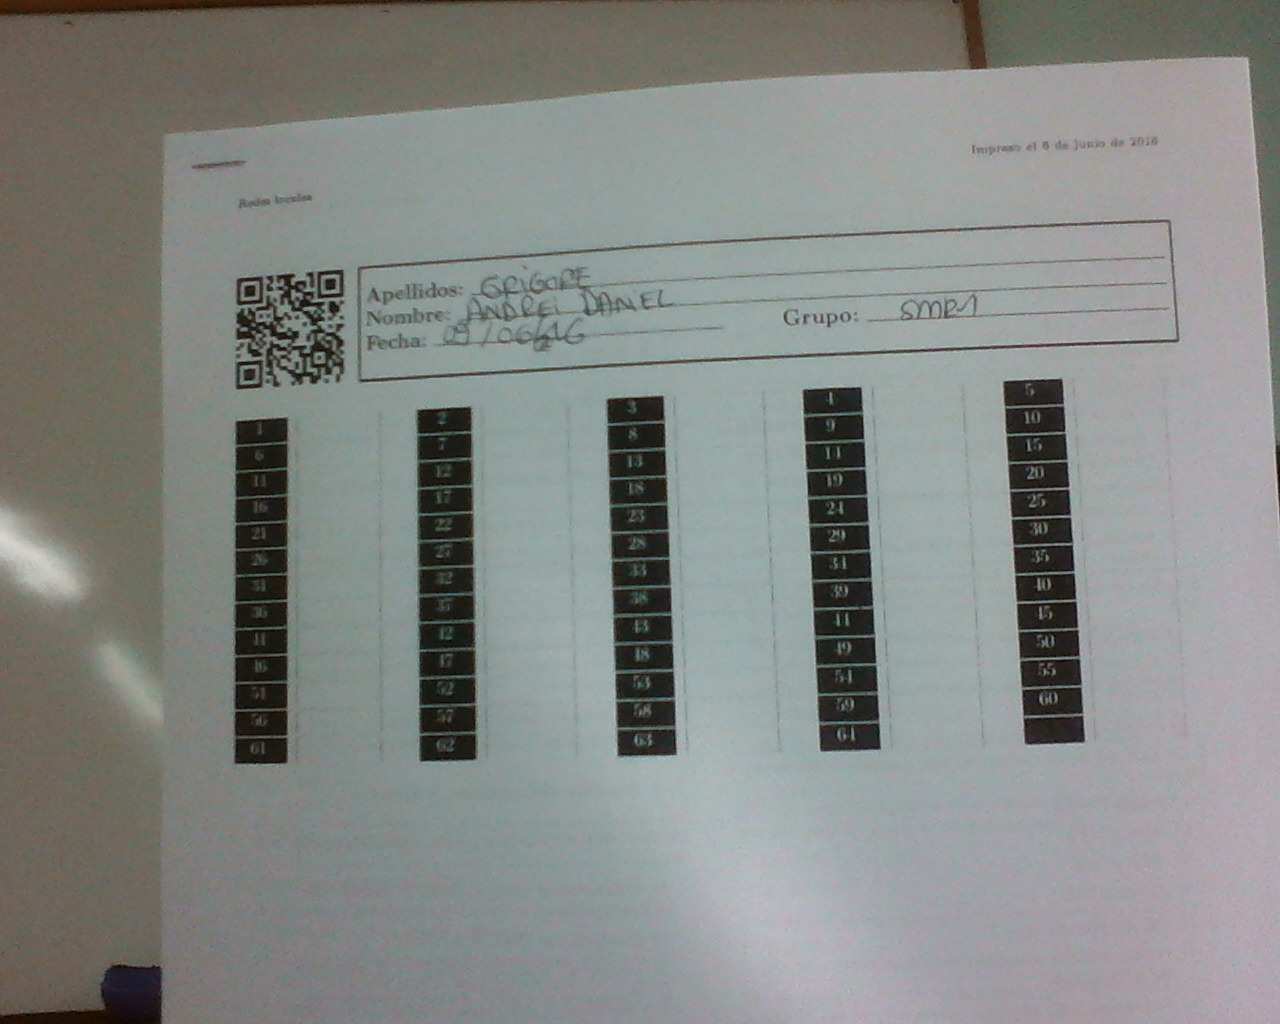 Impreso el 6 de junio de 2016
Redes locales
Apellidos: GRIGORE
Nombre: ANDREI DANIEL
Fecha: 09/06/16 Grupo: SMR1
1 2 3 4 5
6 7 8 9 10
11 12 13 14 15
16 17 18 19 20
21 22 23 24 25
26 27 28 29 30
31 32 33 34 35
36 37 38 39 40
41 42 43 44 45
46 47 48 49 50
51 52 53 54 55
56 57 58 59 60
61 62 63 64